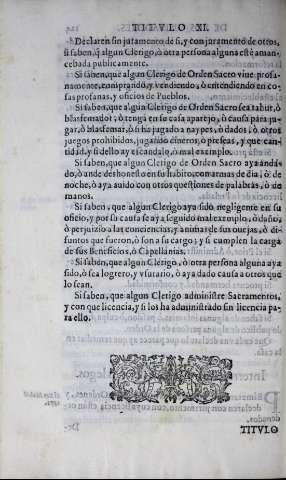 TITVLO XI.
Declaren sin juramento de si, y con juramento de otros,
si saben, q̃ algun Clerigo, ò otra persona alguna estè aman-
cebada publicamente.
Si saben, que algun Clerigo de Orden Sacro viue profa-
namente, comprando, y vendiendo, ò entendiendo en co-
sas profanas, y oficios de Pueblos.
Si saben, que algun Clerigo de Orden Sacro sea tahur, ò
blasfemador, ò tenga en su casa aparejo, ò causa para ju-
gar, ò blasfemar, ò si ha jugado a naypes, ò dados, ò otros
juegos prohibidos, jugando dineros, ò piesas, y que can-
tidad, y si dello ay escandalo, ò mal exemplo.
Si saben, que algun Clerigo de Orden Sacro aya anda-
do, ò ande deshonesto en su habito, con armas de dia, ò de
noche, ò aya auido con otros questiones de palabras, ò de
manos.
Si saben, que algun Clerigo aya sido negligente en su
oficio, y por su causa se aya seguido mal exemplo, ò daño,
ò perjuizio a las conciencias, y animas de sus ouejas, ò di-
funtos que fueron, ò son a su cargo; y si cumplen la carga
de sus Beneficios, ò Capellanias.
Si saben, que algun Clerigo, ò otra persona alguna aya
sido, ò sea logrero, y vsurario, ò aya dado causa a otros que
lo sean.
Si saben, que algun Clerigo administre Sacramentos,
y con que licencia, y si los ha administrado sin licencia pa-
ra ello.
TITVLO